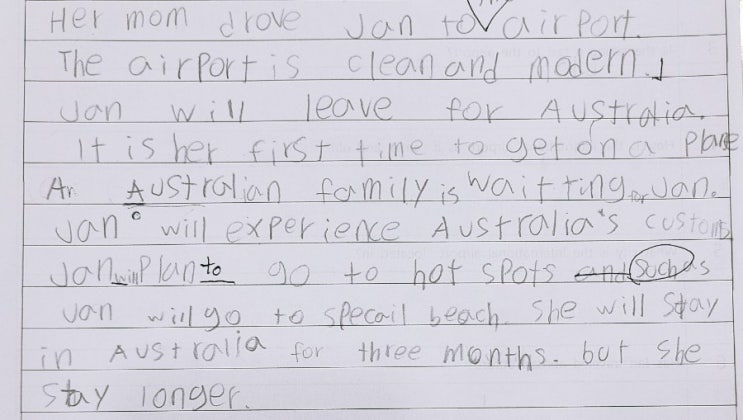 Her mom drove Jan to airport.
The airport is clean and modern.
Jan will leave for Australia.
It is her first time to get on a plane
An Australian family is waitting for Jan.
Jan will experience Australia's customs
Jan will plan to go to hot spots and such as
Jan will go to specail beach. She will stay
in Australia for three months. but she
stay longer.